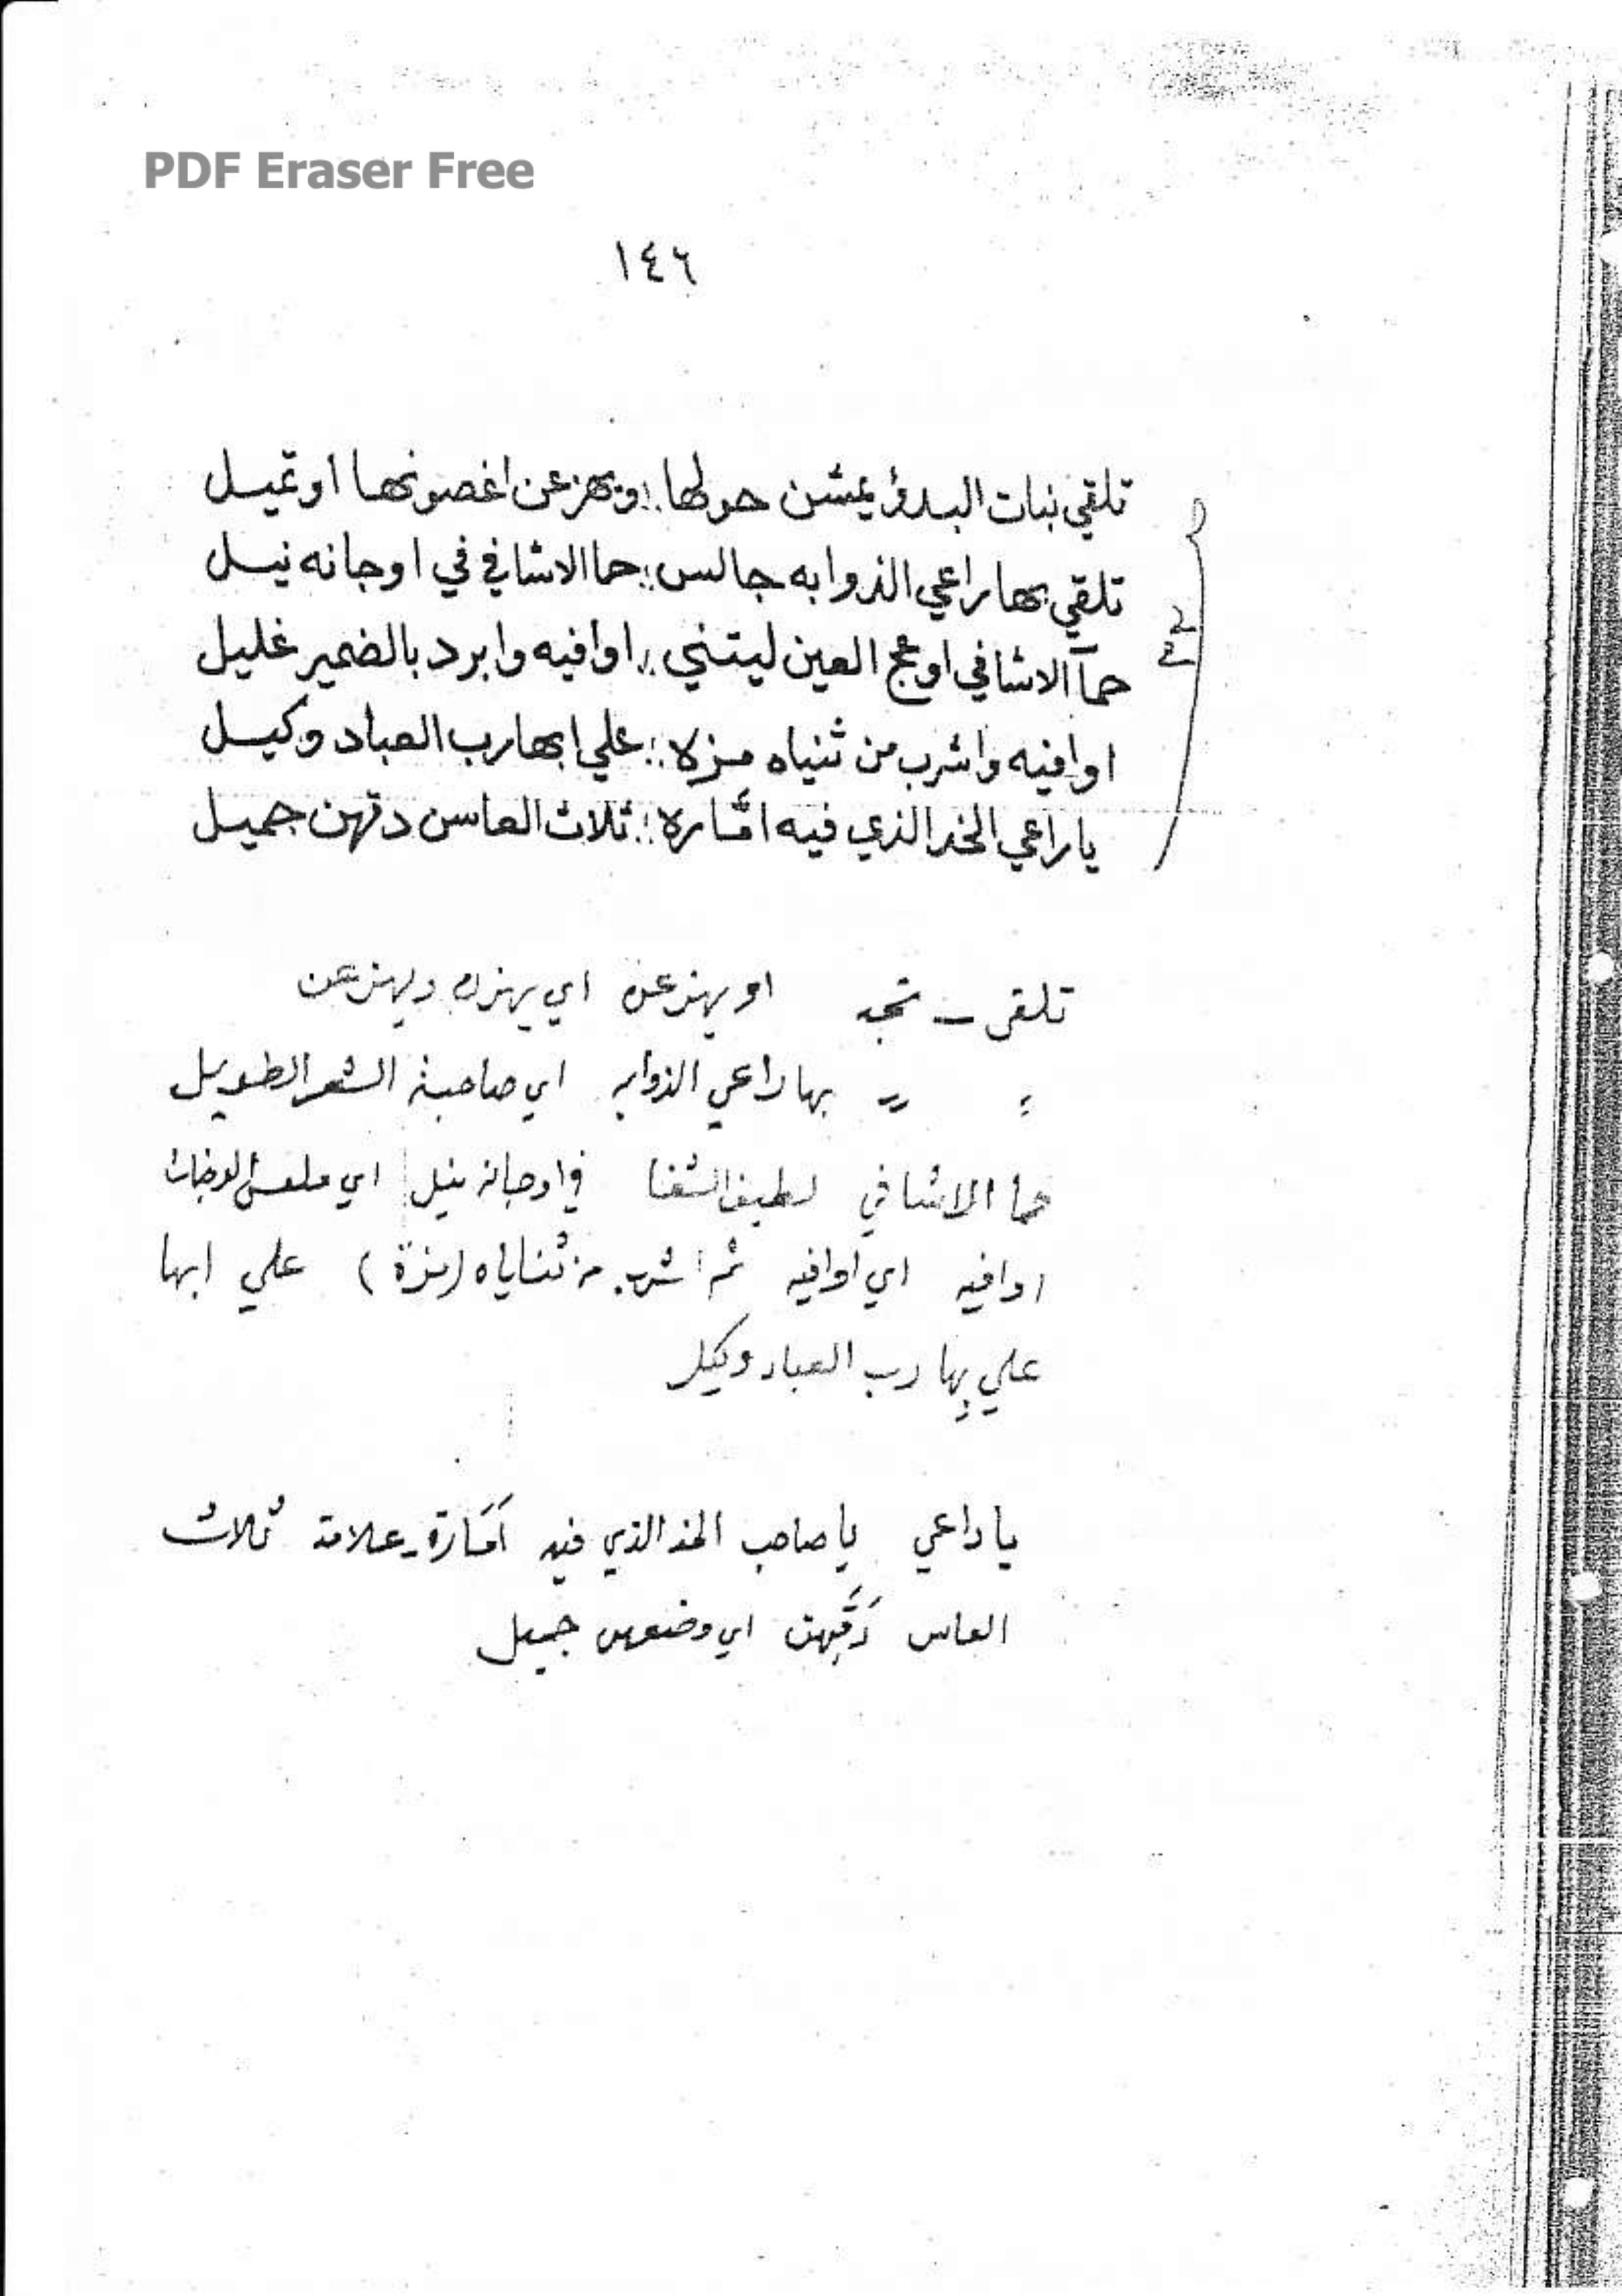 PDF Eraser Free
١٤٦
تلقي بنات البدؤ يمشن حولها ؛؛ ويهزعن اغصونها اوتميل
تلقي بها راعي الذوابه جالس ؛؛ حما الاشافي في اوجانه نيل
حمآ الاشافي اوعج العين ليتني ؛؛ اوافيه وابرد بالضمير غليل
اوافيه واشرب من ثنياه مزه ؛؛ علي ابها رب العباد وكيل
يا راعي الخد الذي فيه امَّاره ؛؛ ثلاث العاسن دقهن جميل
تلقى ــ تجد او يهزعن اي يهزن ويهزعن
؛ ؍؍ بها راعي الذوابه اي صاحبة الشعر الطويل
حما الاشافي لطيف الشفا في اوجانه نيل اي ملعس الوجنات
اوافيه اي اوافيه ثم اشرب من ثناياه (مزة) علي ابها
علي بها رب العباد وكيل
يا راعي يا صاحب الخد الذي فيه اَمَارة ـ علامة ثلاث
العاس دَقَّهن اي وضعهن جميل